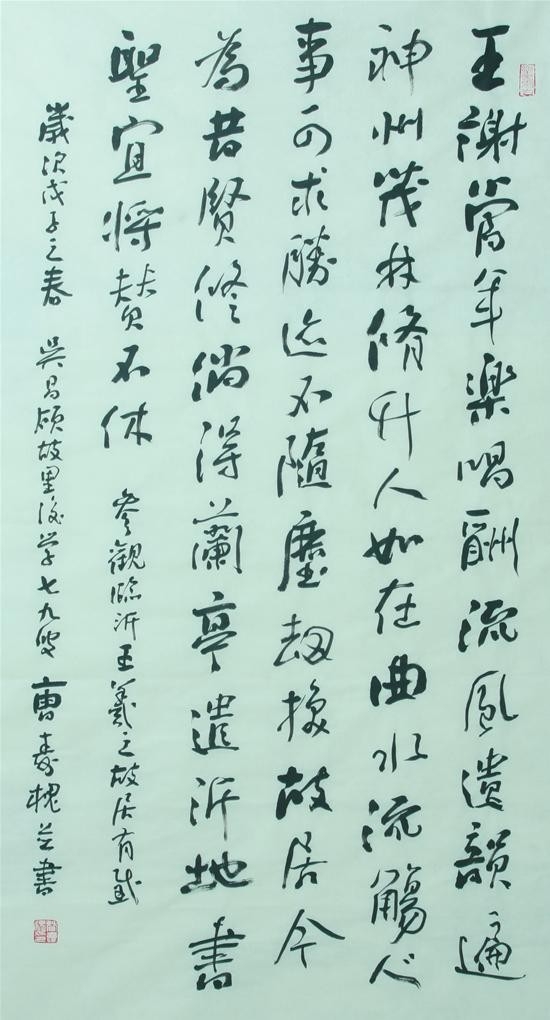 王謝當年樂唱酬流風遺韻遍
神州茂林脩竹人如在曲水流觴心
事可求勝迹不隨塵劫換故居今
為昔賢修倘得蘭亭遺沂地書
聖宜將贊不休 參觀臨沂王羲之故居有感
歲次戊子之春 吳昌碩故里後学七九叟曹寿槐並書